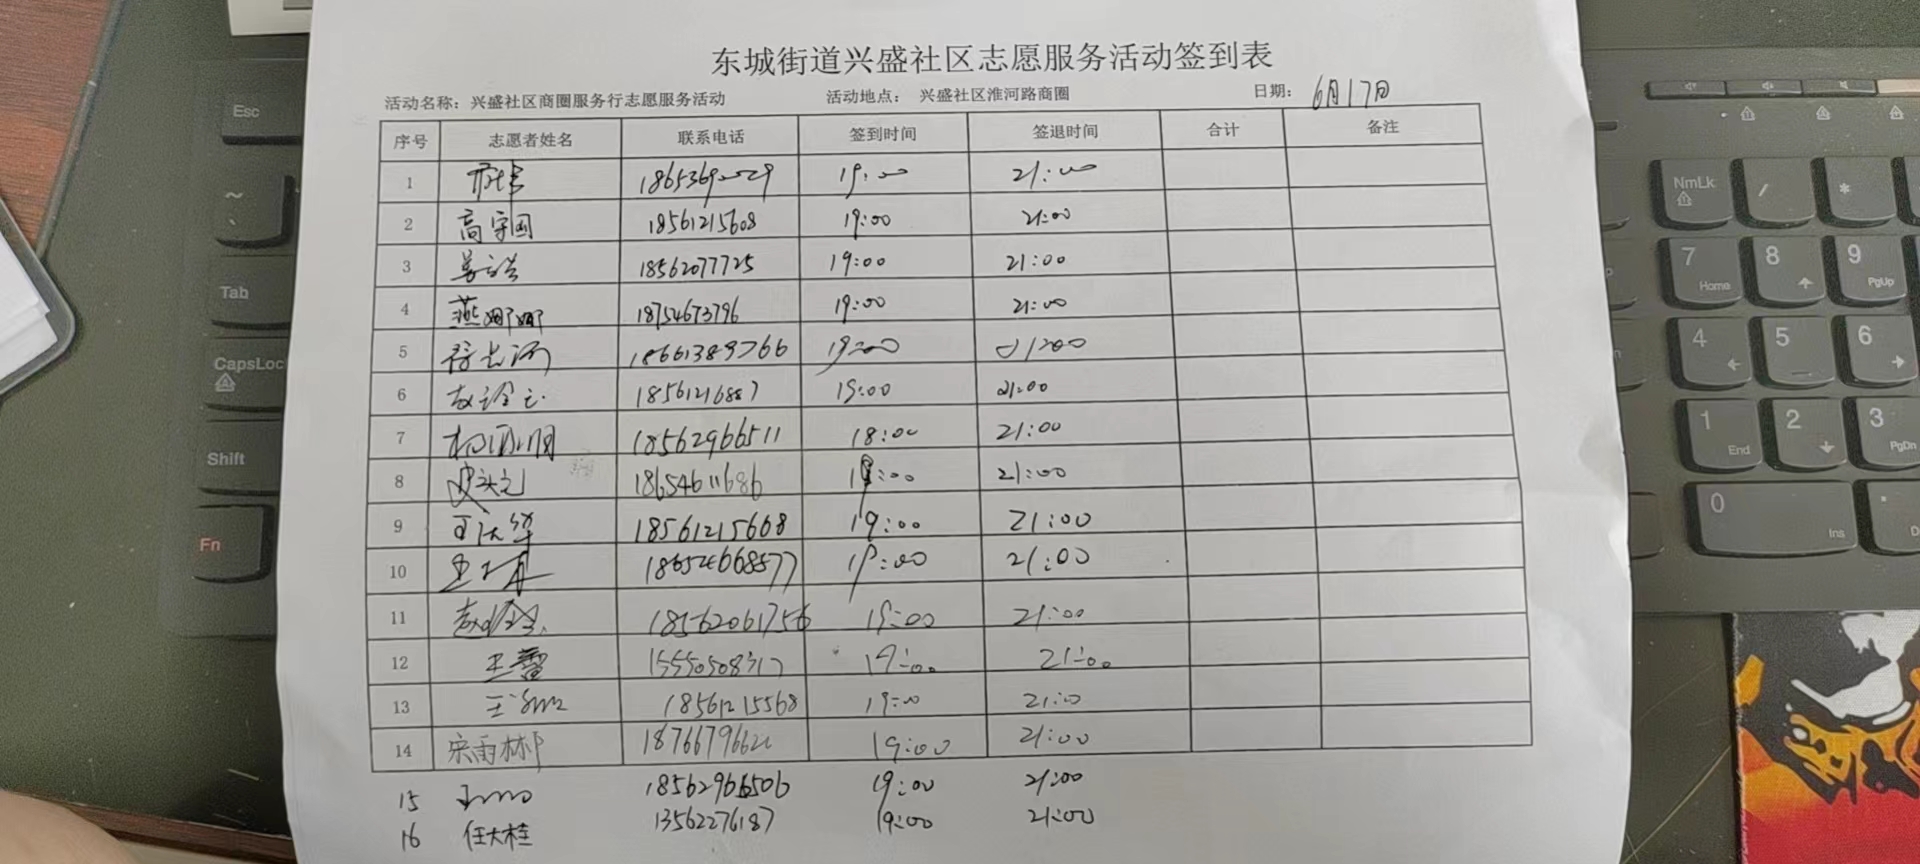 东城街道兴盛社区志愿服务活动签到表
活动名称：兴盛社区商圈服务行志愿服务活动 活动地点： 兴盛社区淮河路商圈 日期： 6月17日
序号 志愿者姓名 联系电话 签到时间 签退时间 合计 备注
1 19:00 21:00
2 高宇国 18561215608 19:00 21:00
3 18562077725 19:00 21:00
4 燕娜娜 18754673796 19:00 21:00
5 18661389766 19:00 21:00
6 18561216887 19:00 21:00
7 18562966511 18:00 21:00
8 18654611686 19:00 21:00
9 18561215668 19:00 21:00
10 18654668577 19:00 21:00
11 18562061756 19:00 21:00
12 王馨 15550508317 19:00 21:00
13 18561215568 19:00 21:00
14 宋雨林 19:00 21:00
15 18562966506 19:00 21:00
16 任大桂 13562276187 19:00 21:00
Esc
~
、
Tab
CapsLoc
Shift
Fn
NmLk / *
7 Home 8 9 PgUp
4 5 6
1 End 2 3 PgDn
0 Ins